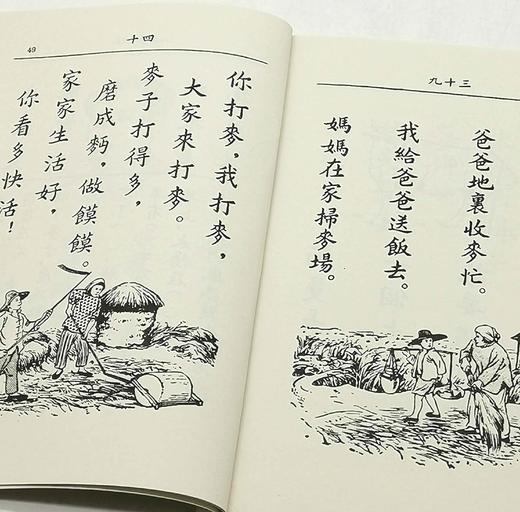 三十九
爸爸地裏收麥忙。
我給爸爸送飯去。
媽媽在家掃麥場。
四十
49
你打麥，我打麥，
大家來打麥。
麥子打得多，
磨成麪，做饃饃。
家家生活好，
你看多快活！